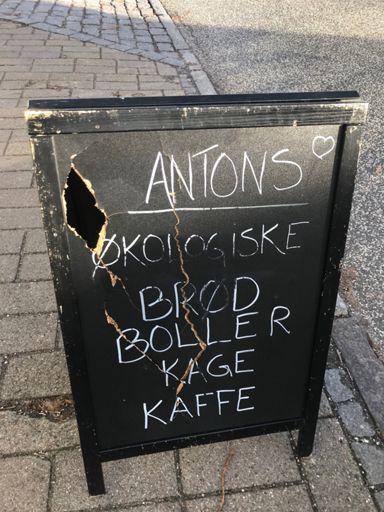 ANTONS
ØKOLOGISKE
BRØD
BOLLER
KAGE
KAFFE